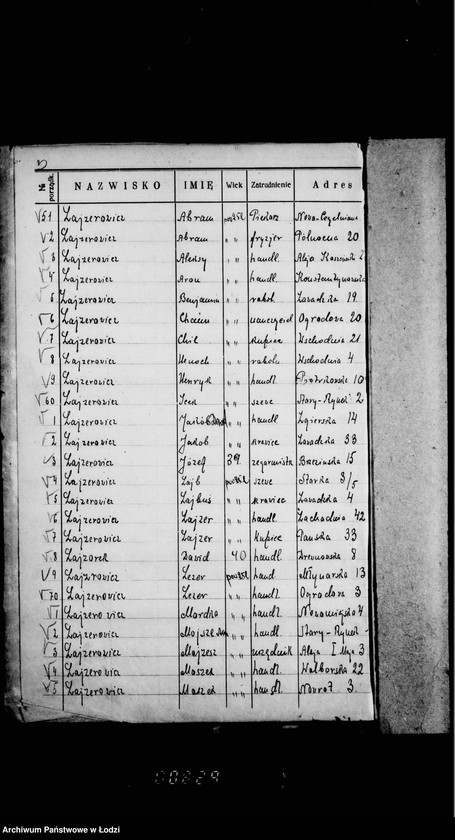 № porządk. NAZWISKO IMIĘ Wiek Zatrudnienie Adres
51 Lajzerowicz Abram
2 Lajzerowicz Abram " " fryzjer Północna 20
3 Lajzerowicz Aleksy " " handl.
4 Lajzerowicz Aron " " handl.
5 Lajzerowicz Benjamin " " 19
6 Lajzerowicz Chaim " " Ogrodowa 20
7 Lajzerowicz Chil " " kupiec Wschodnia 21
8 Lajzerowicz Henoch " " Wschodnia 4
9 Lajzerowicz Henryk " " handl. Piotrkowska 10
60 Lajzerowicz Icek " " szewc Stary-Rynek 2
1 Lajzerowicz Jakób " " handl Zgierska 14
2 Lajzerowicz Jakob " " krawiec Zawadzka 38
3 Lajzerowicz Józef 39 zegarmistrz Brzezińska 15
4 Lajzerowicz Lajb szewc 3/5
5 Lajzerowicz Lajbuś " " krawiec Zawadzka 4
6 Lajzerowicz Lajzer " " handl. Zachodnia 42
7 Lajzerowicz Lajzer " " kupiec Pańska 33
8 Lajzorek Dawid 40 handl. Drewnowska 8
9 Lajzrowicz Lezor hand. Młynarska 13
70 Lajzerowicz Lezor " " handl. Ogrodowa 3
1 Lajzerowicz Mordka " " handl. Nowomiejska 4
2 Lajzerowicz " " handl. Stary-Rynek
3 Lajzerowicz Majzesz " " urzędnik Aleja I Maja 3
4 Lajzerowicz Moszek " " handl. Wólborska 22
5 Lajzerowicz Moszek " " handl. Nawrot 3.
00829
Archiwum Państwowe w Łodzi